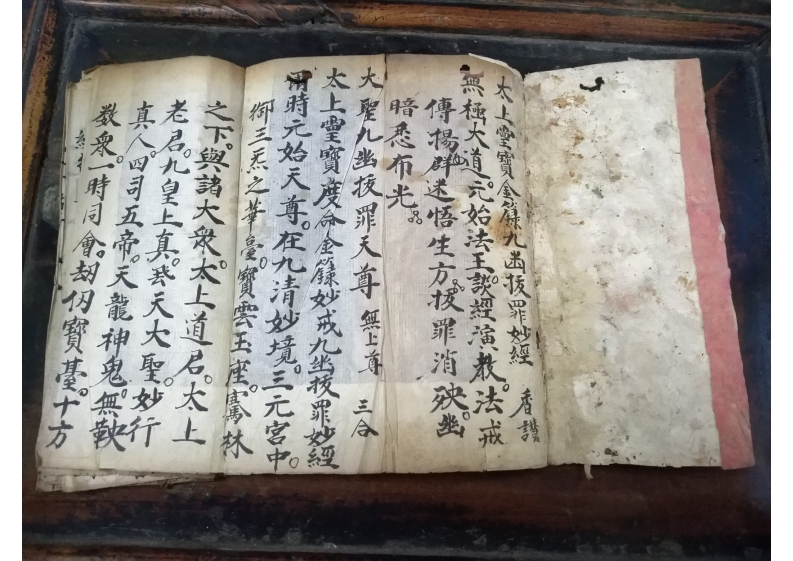 太上靈寶金籙九幽拔罪妙經 香讚
無極大道。元始法王。談經演教。法戒
傳揚群迷悟生方。拔罪消殃。幽
暗悉布光。
大聖九幽拔罪天尊 無上尊 三合
太上靈寶度命金籙妙戒九幽拔罪妙經
爾時元始天尊。在九清妙境。三元宮中。
御三炁之華臺。寶雲玉座。騫林
之下。與諸大衆。太上道君。太上
老君。九皇上真。飛天大聖。妙行
真人。四司五帝。天龍神鬼。無鞅
数衆。一時同會。劫仞寶臺。十方